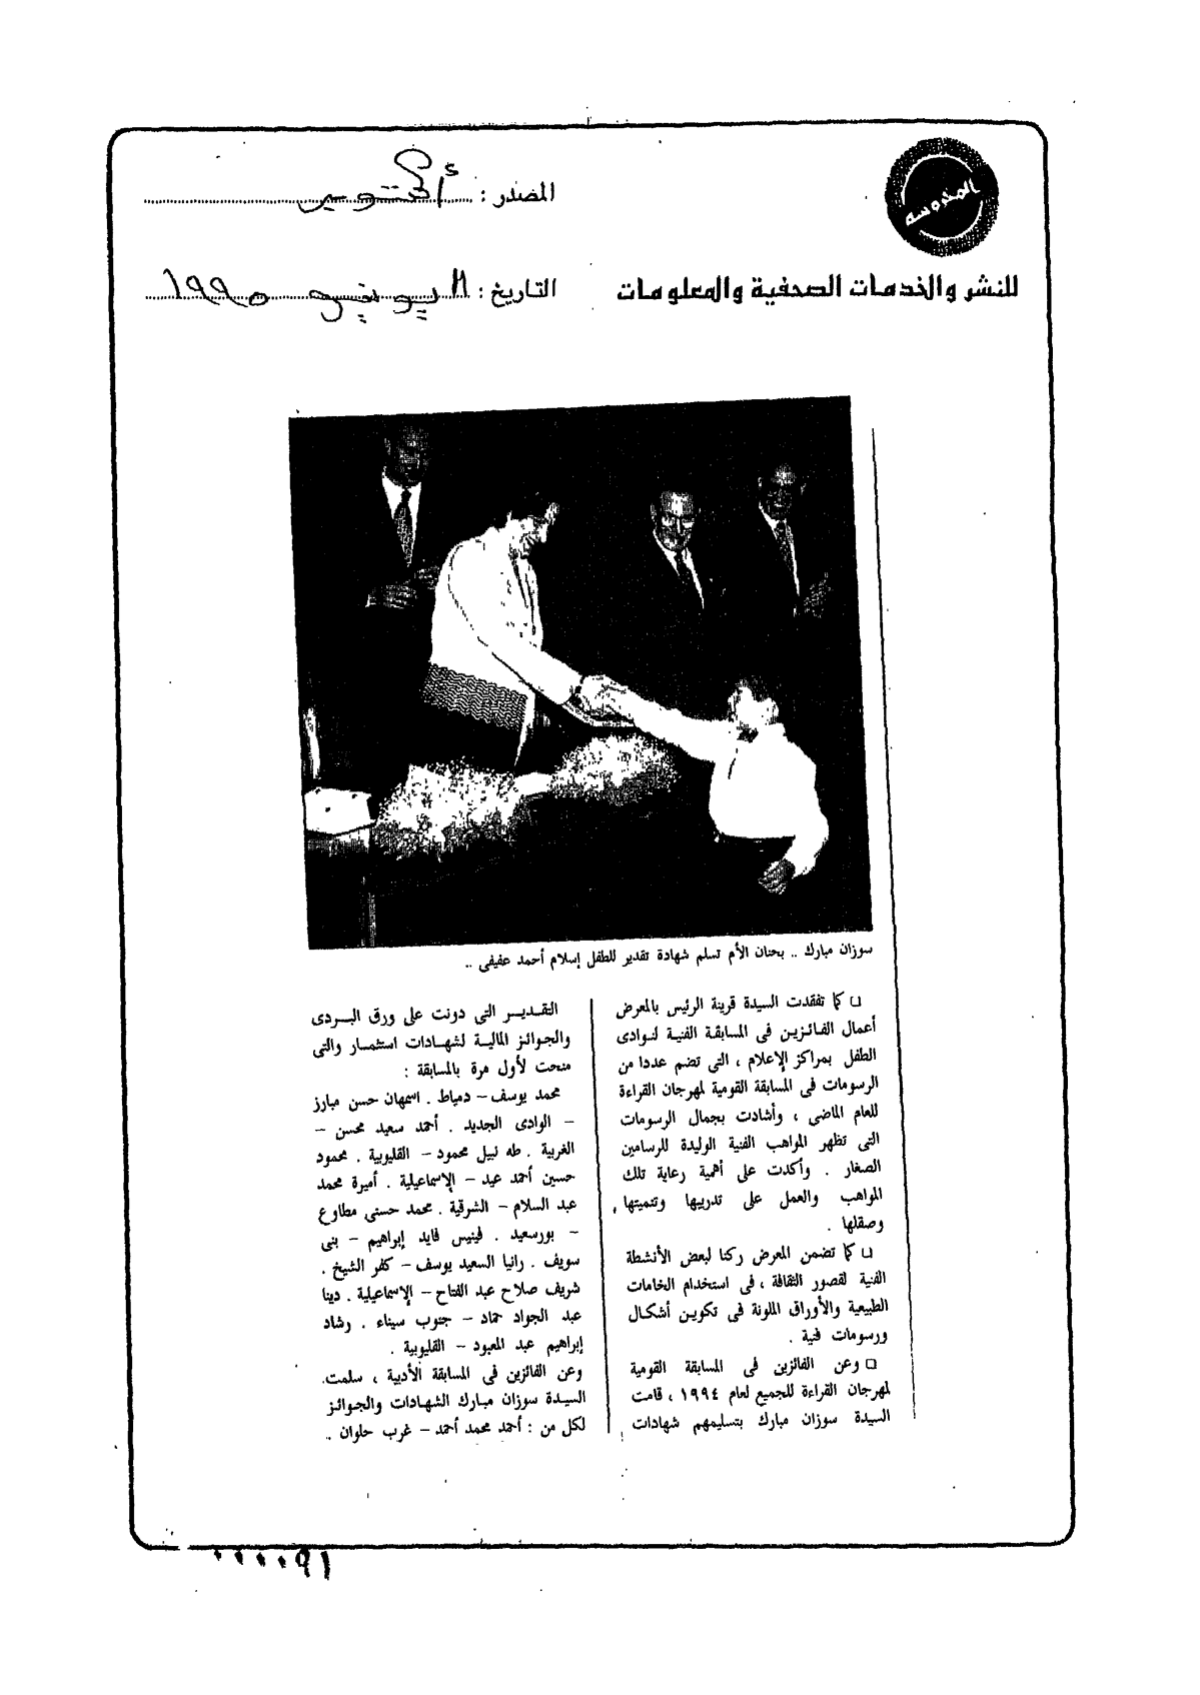 المحروسه
للنشر والخدمات الصحفية والمعلومات
المصدر : أكتوبر
التاريخ : ١١ يونيو ١٩٩٥
سوزان مبارك .. بحنان الأم تسلم شهادة تقدير للطفل إسلام أحمد عفيفى ..
❑ كما تفقدت السيدة قرينة الرئيس بالمعرض
أعمال الفائزين فى المسابقة الفنية لنوادى
الطفل بمراكز الإعلام ، التى تضم عددا من
الرسومات فى المسابقة القومية لمهرجان القراءة
للعام الماضى ، وأشادت بجمال الرسومات
التى تظهر المواهب الفنية الوليدة للرسامين
الصغار . وأكدت على أهمية رعاية تلك
المواهب والعمل على تدريبها وتنميتها ,
وصقلها .
❑ كما تضمن المعرض ركنا لبعض الأنشطة
الفنية لقصور الثقافة ، فى استخدام الخامات
الطبيعية والأوراق الملونة فى تكوين أشكال
ورسومات فنية .
❑ وعن الفائزين فى المسابقة القومية
لمهرجان القراءة للجميع لعام ١٩٩٤ ، قامت
السيدة سوزان مبارك بتسليمهم شهادات
التقدير التى دونت على ورق البردى
والجوائز المالية لشهادات استثمار والتى
منحت لأول مرة بالمسابقة :
محمد يوسف – دمياط . اسمهان حسن مبارز
– الوادى الجديد . أحمد سعيد محسن –
الغربية . طه نبيل محمود – القليوبية . محمود
حسين أحمد عيد – الإسماعيلية . أميرة محمد
عبد السلام – الشرقية . محمد حسنى مطاوع
– بورسعيد . فينيس فايد إبراهيم – بنى
سويف . رانيا السعيد يوسف – كفر الشيخ .
شريف صلاح عبد الفتاح – الإسماعيلية . دينا
عبد الجواد حماد – جنوب سيناء . رشاد
إبراهيم عبد المعبود – القليوبية .
وعن الفائزين فى المسابقة الأدبية ، سلمت
السيدة سوزان مبارك الشهادات والجوائز
لكل من : أحمد محمد أحمد – غرب حلوان ..
٠٠٠٠٩١